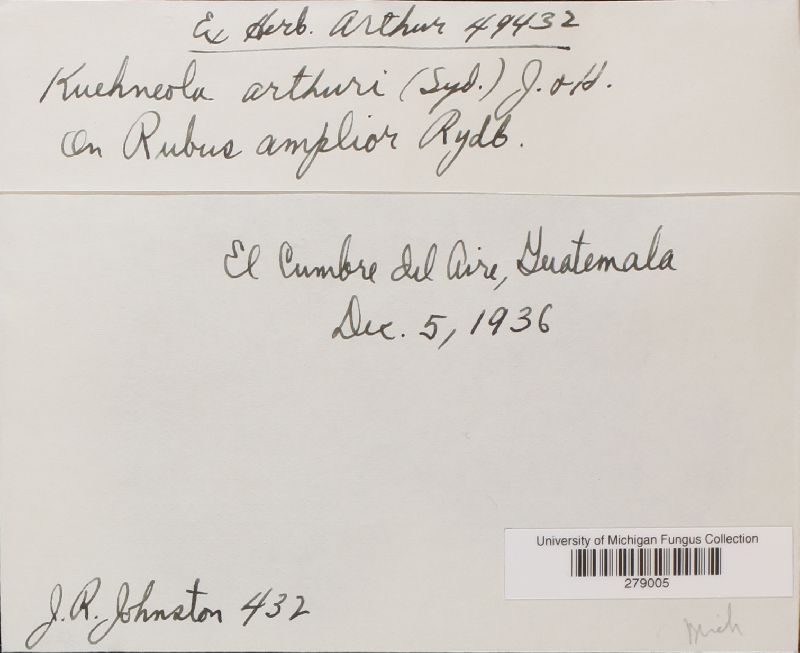 Ex Herb. Arthur 49432
Kuehneola arthuri (Syd.) J. & H.
On Rubus amplior Rydb.
El Cumbre del Aire, Guatemala
Dec. 5, 1936
University of Michigan Fungus Collection
279005
J.R. Johnston 432
Mich